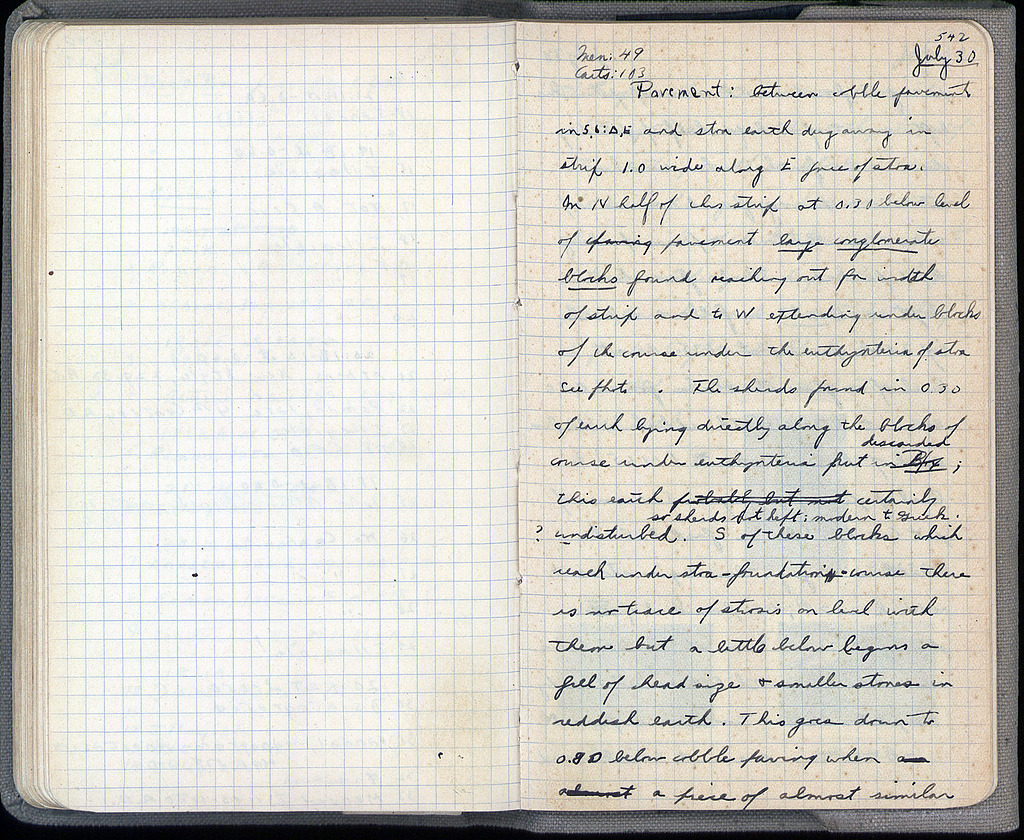 542
Men: 49
July 30
Carts: 103
Pavement: between cobble pavement
in 5, 6: Δ, E and stoa earth dug away in
strip 1.0 wide along E face of stoa.
In N half of this strip at 0.30 below level
of paving pavement large conglomerate
blocks found reaching out for width
of strip and to W extending under blocks
of the course under the euthynteria of stoa
See photo . The sherds found in 0.30
of earth lying directly along the blocks of
discarded
course under euthynteria put in Box;
this earth probably but most certainly
so sherds not kept; modern to Greek.
? undisturbed. S of these blocks which
reach under stoa-foundation-course there
is no trace of strosis on level with
them but a little below begins a
fill of head size & smaller stones in
reddish earth. This goes down to
0.80 below cobble paving when a
almost a piece of almost similar